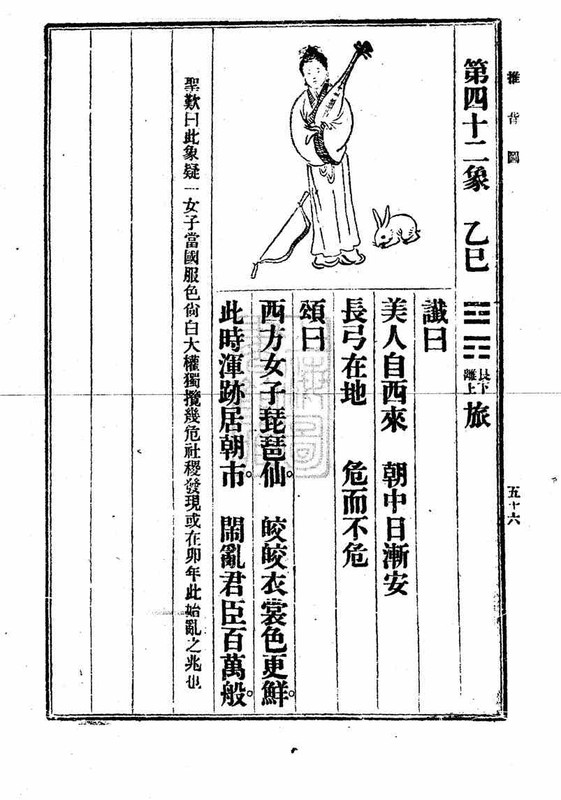 推背圖
五十六
第四十二象 乙巳 ䷷ 艮下離上 旅
讖曰
美人自西來 朝中日漸安
長弓在地 危而不危
頌曰
西方女子琵琶仙。 皎皎衣裳色更鮮。
此時渾跡居朝市。 鬧亂君臣百萬般。
聖歎曰此象疑一女子當國服色尙白大權獨攬幾危社稷發現或在卯年此始亂之兆也